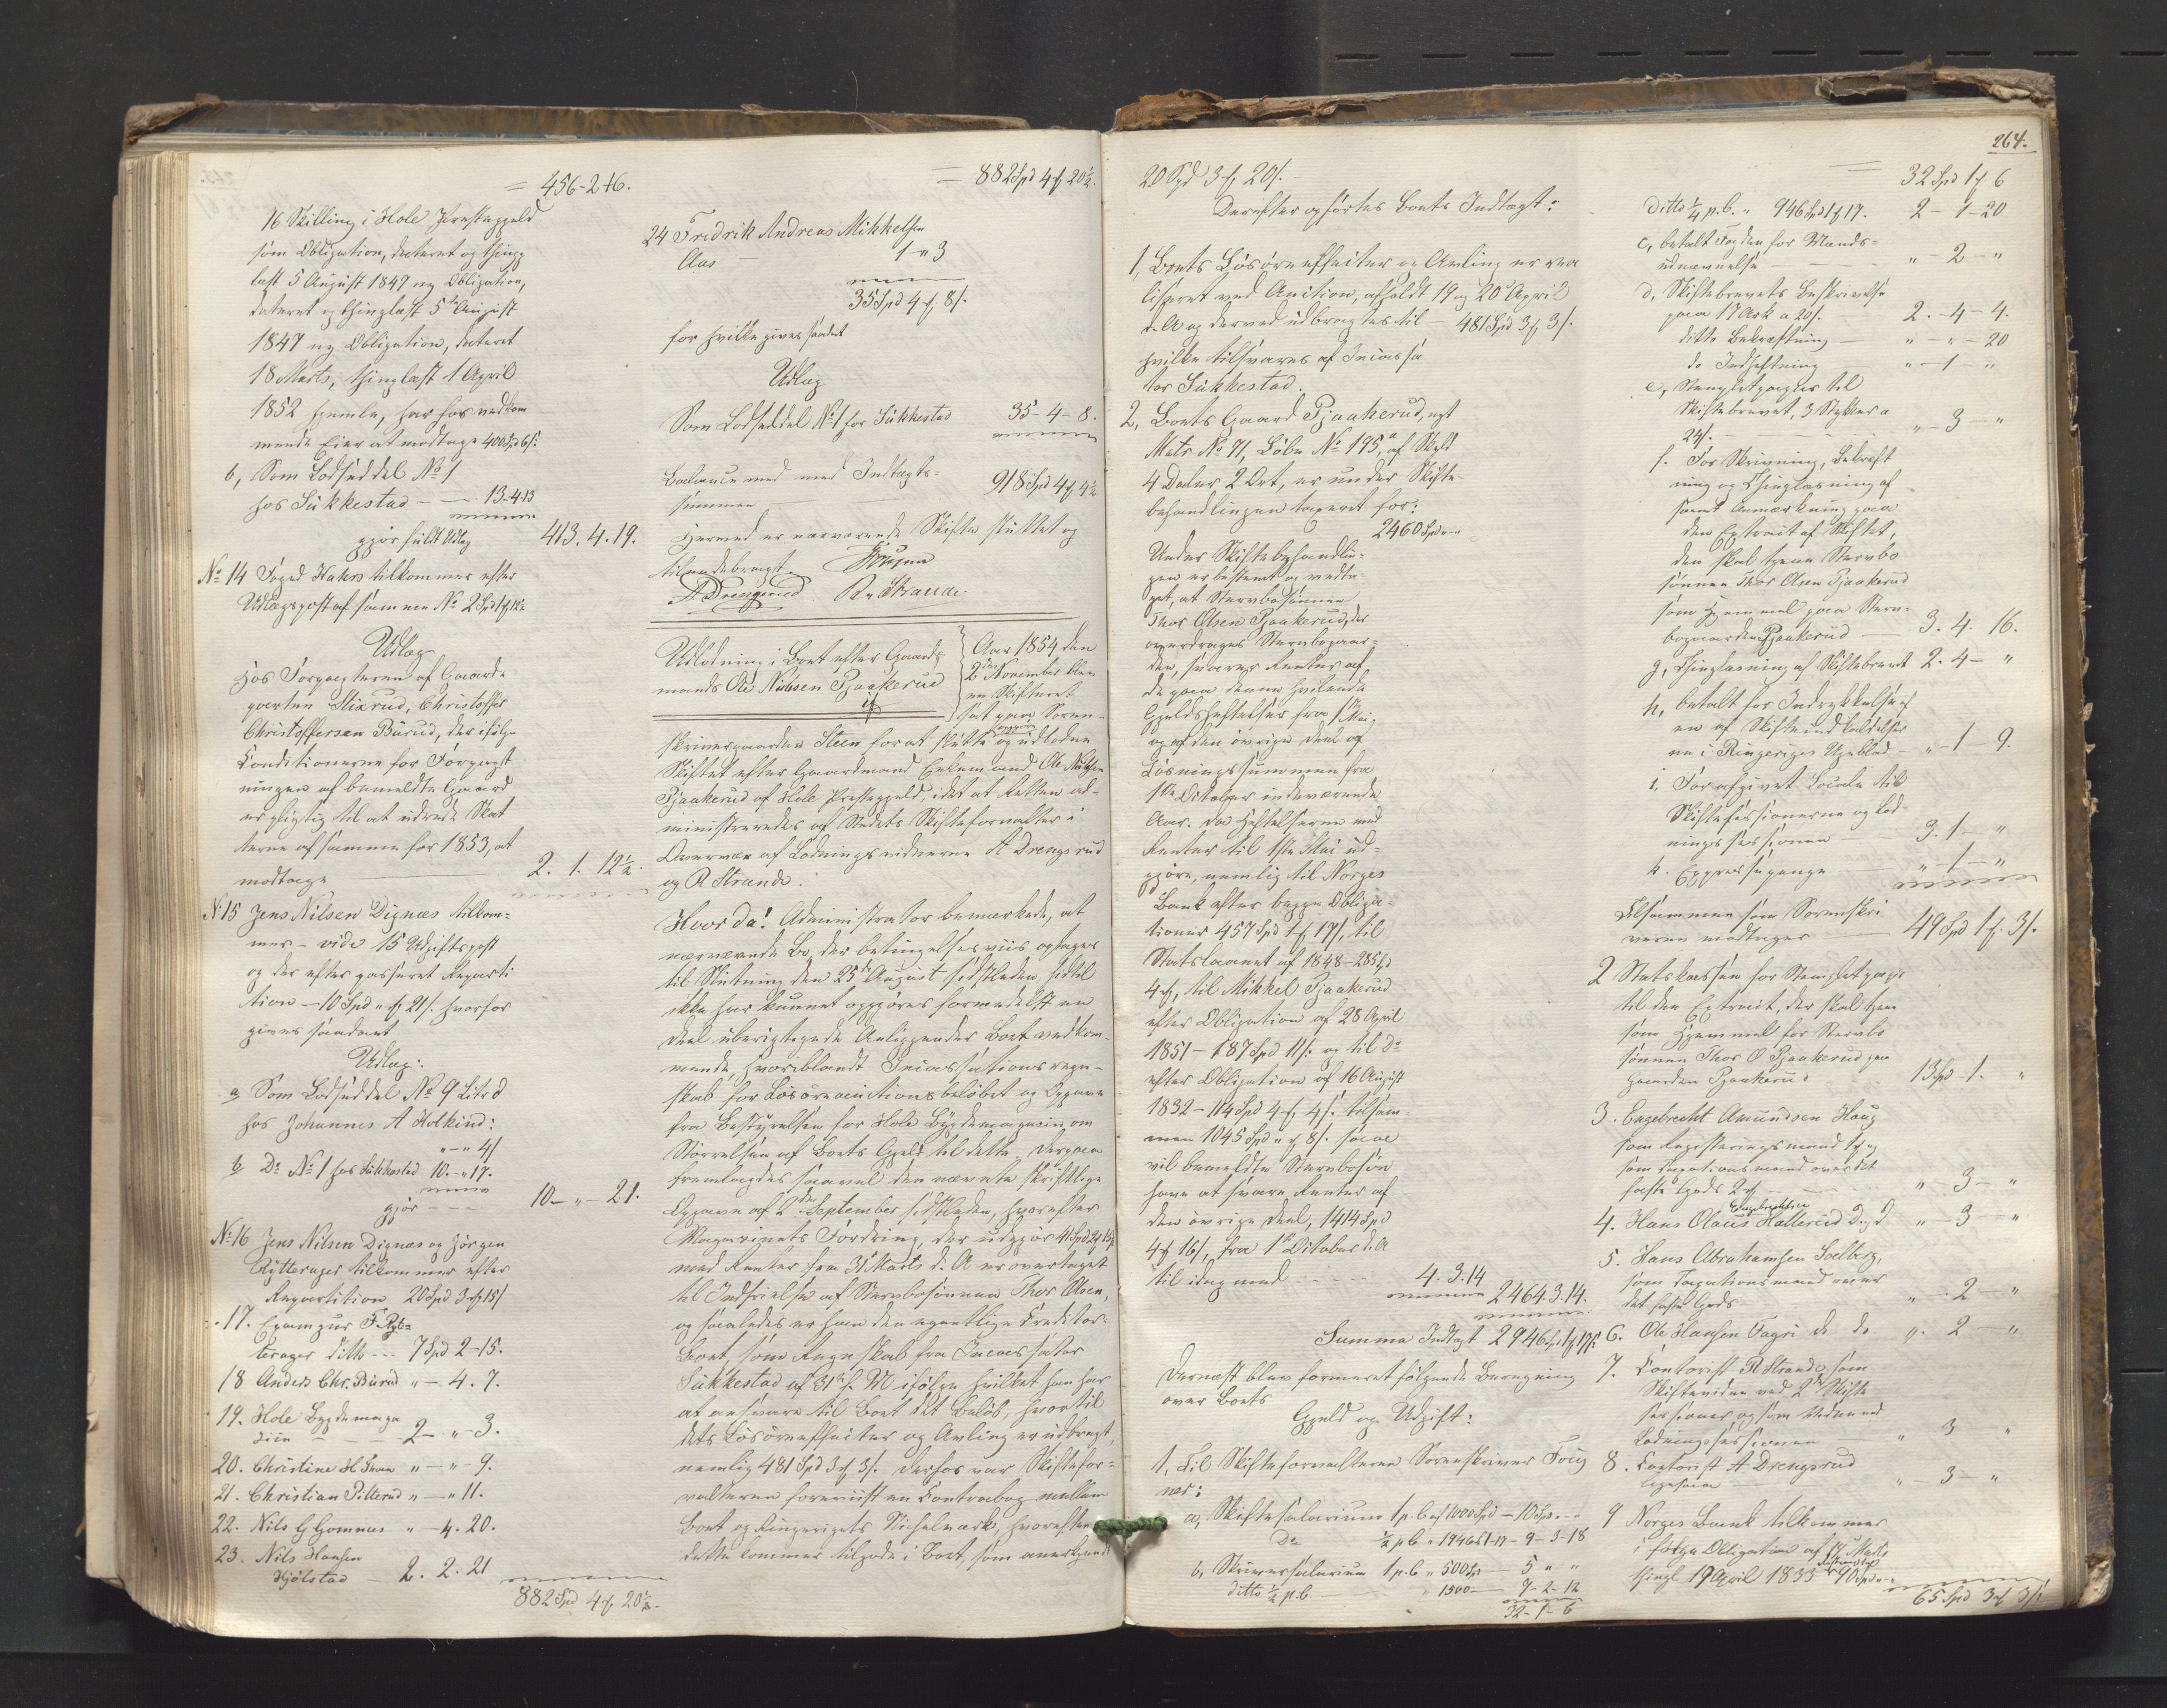 = 456-2-16.
16 Skilling i Hole Præstegjeld
som Obligation, dateret og thing-
læst 5 August 1847 og Obligation,
dateret og thinglæst 5te August
1847 og Obligation, dateret
18 Marts, thinglæst 1 April
1852
mende Eier at modtage 400 Spd 6 s:
b, Som Lodseddel No 1
hos Sukkestad - 13-4-13
gjør fuldt Udlæg 413. 4. 19.
No 14 Foged Hahn tilkommer efter
Udlægspost af samme No 2 Spd 1 # 12½
Udlæg
hos Forpagteren af Gaard-
parten Slixrud, Christoffer
Christoffersen Burud, der ifølge
Conditionerne for Forpagt-
ningen af bemeldte Gaard
er pligtig til at udrede Skat
terne af samme for 1853, at
modtage 2. 1. 12½.
No 15 Jens Nilsen Dignæs tilkom-
mer - vide 15 Udgiftspost
og der efter passeret Reparti
tion - 10 Spd " # 21 s. hvorfor
gives saadant
Udlæg:
a Som Lodseddel No 9 Litr d
hos Johannes A Holkind:
" - " 4 s
b Do No 1 hos Sukkestad 10. - " 17.
gjør - 10 - " - 21.
No 16 Jens Nilsen Dignæs og Jørgen
Rytterager tilkommer efter
Repartition 20 Spd 3 # 15 s
17. F. Ryt-
terager ditto - 7 Spd 2-15.
18 Anders Chr. Burud " - 4. 7.
19. Hole Bygdemaga
zin - 2 - " - 3.
20. Christine H " - " - 9.
21. Christian Pitterud " - " 11.
22. Nils G Gomnæs " - 4. 20.
23. Nils Hansen
Hjølstad - 2. 2. 21
882 Spd 4 # 20½.
= 882 Spd 4 # 20½.
24 Fredrik Andreas Mikkelsen
Aas - 1 - " 3
35 Spd 4 # 8 s.
for hvilke gives saadant
Udlæg
Som Lodseddel No 1 hos Sukkestad 35-4-8.
Balancerende med Indtægts-
summen 918 Spd 4 # 4½
Hermed er nærværende Skifte sluttet og
tilendebragt.
A Drengsrud R Strande
Udlodning i Boet efter Gaard-
mand Ole Nubsen Pjaakerud
Aar 1854 den
2den November blev
en Skifteret
sat paa Soren-
skrivergaarden Steen for at slutte og udlodne
Skiftet efter Gaardmand Enkemand Ole Nubsen
Pjaakerud af Hole Præstegjeld, idet at Retten ad-
ministreredes af Stedets Skifteforvalter i
Overvær af Lodningsvidnerne A Drengsrud
og R Strande.
Hvor da! Administrator bemærkede, at
nærværende Bo, der betingelsesviis optages
til Slutning den 25de August sidstleden, hidtil
ikke har kunnet opgjøres formedelst en
Deel uberigtigede Anliggender Boet vedkom-
mende, hvoriblandt Incassationsregn-
skab for Løsøreauctionsbeløbet og Opgave
fra Bestyrelsen for Hole Bygdemagazin om
Størrelsen af Boets Gjeld til dette. Derpaa
fremlagdes saavel den nævnte skriftlige
Opgave af 2den September sidstleden, hvorefter
Magazinets Fordring, der udgjør 41 Spd 2 #
med Renter fra 31 Marts d. A er overtaget
til Indfrielse af Stervbosønnen Thor Olsen,
og saaledes er han den egentlige Creditor
Boet, som Regnskab fra Incassator
Sukkestad af 31te f. M ifølge hvilket han har
at ansvare til Boet det Beløb, hvortil
dets Løsøreeffecter og Avling er udbragt,
nemlig 481 Spd 3 # 3 s. Derhos var Skiftefor-
valteren foreviist en Contrabog mellem
Boet og Ringerigets Nikkelværk, hvorefter
dette kommer tilgode i Boet, som anerkjendt
264.
20 Spd 3 # 20 s.
Derefter opførtes Boets Indtægt:
1, Boets Løsøreeffecter og Avling er rea
liseret ved Auction, afholdt 19 og 20 April
d. A og derved udbragtes til - 481 Spd 3 # 3 s.
hvilke tilsvares af Incassa
tor Sukkestad.
2, Boets Gaard Pjaakerud, ny
Matr No 71, Løbe No 195a, af Skyld
4 Daler 2 Ort, er under Skifte-
behandlingen taxeret for:
2460 Spd " "
Under Skiftebehandlin-
gen er bestemt og vedta
get, at Stervbosønnen
Thor Olsen Pjaakerud, der
overdrages Stervbogaar-
den, svarer Renter af
de paa denne hvilende
Gjeldsheftelser fra 1ste Mai,
og af den øvrige Deel af
Løsningssummen fra
1ste October indeværende
Aar. Da Heftelserne med
Renter til 1ste Mai ud-
gjøre, nemlig til Norges
Bank efter begge Obliga-
tioner 457 Spd 1 # 17 s, til
Statslaanet af 1848 - 285 Spd
4 #, til Mikkel Pjaakerud
efter Obligation af 28 April
1851 - 187 Spd 11 s: og til Do
efter Obligation af 16 August
1832 - 114 Spd 4 # 4 s. tilsam-
men 1045 Spd " # 8 s. saa
vil bemeldte Stervbosøn
have at svare Renter af
den øvrige Deel, 1414 Spd
4 # 16 s, fra 1ste October d. A
til idag med - 4. 3. 14
2464. 3. 14.
Summa Indtægt 2946 Spd 1 # 17 s.
Dernæst blev formeret følgende Beregning
over Boets
Gjeld og Udgift:
1, Til Skifteforvalteren Sorenskriver Foug
ner:
a, Skiftesalarium 1 p. C. af 1000 Spd - 10 Spd. -
Do ½ p. C. " 1946 Spd 1-17 - 9 - 3 - 18
b, Skriversalarium 1 p. C. " 500 Spd - 5 " "
ditto ½ p. C. - " 1500 - 7-2-12
32-1-6
32 Spd 1 # 6
ditto ¼ p. C. " 946 Spd 1 # 17. 2-1-20
c, betalt Fogden for Mænds-
udnævnelse - " - 2 - "
d, Skiftebrevets Beskrivelse
paa 17 Ark a 20 s. 2. - 4 - 4.
ditto Bekræftning - " - " - 20
do Indheftning " - 1 - "
e, Stemplet papir til
Skiftebrevet, 3 Stykker a
24 s. - " - 3 - "
f. For Skrivning, Bekræft
ning og Thinglæsning af
samt Anmærkning paa
den Extract af Skiftet,
der skal tjene Stervbo
sønnen Thor Olsen Pjaakerud
som Hjemmel paa Sterv-
bogaarden Pjaakerud - 3. 4. 16.
g, Thinglæsning af Skiftebrevet 2. 4 - "
h, betalt for Indrykkelse
en af Skifteindkaldelser
ne i Ringeriges Ugeblad - " - 1 - 9.
i, For afgivet Locale til
Skiftesessionerne og Lod-
ningssessionen 3. 1 - "
k. Expresse penge " - 1 - "
Tilsammen som Sorenskri
veren modtager - 49 Spd 1 # 3 s.
2 Statskassen for Stemplet papir
til den Extract, der skal tjene
som Hjemmel for Stervbo
sønnen Thor O Pjaakerud paa
Gaarden Pjaakerud 13 Spd - 1. "
3. Engebrecht Amundsen Haug
som Registreringsmand 1 # og
som Taxationsmand over det
faste Gods 2 # " - 3 - "
4. Hans Olaus Engebrechtsen Hallerud " - 3 - "
5. Hans Abrahamsen Solberg,
som Taxationsmand over
det faste Gods " - 2 - "
6. Ole Hansen Fagri do do ". 2 - "
7. Contorist R Strande som
Skiftevidne ved 2de Skifte
sessioner og som Vidne ved
Lodningssessionen - " 3 "
8. Contorist A Drengsrud
ligesaa " 3 - "
9 Norges Bank tilkommer
i følge Obligation af 19 Marts
thingl 19 April 1833 70 Spd "
65 Spd 3 # 3 s: